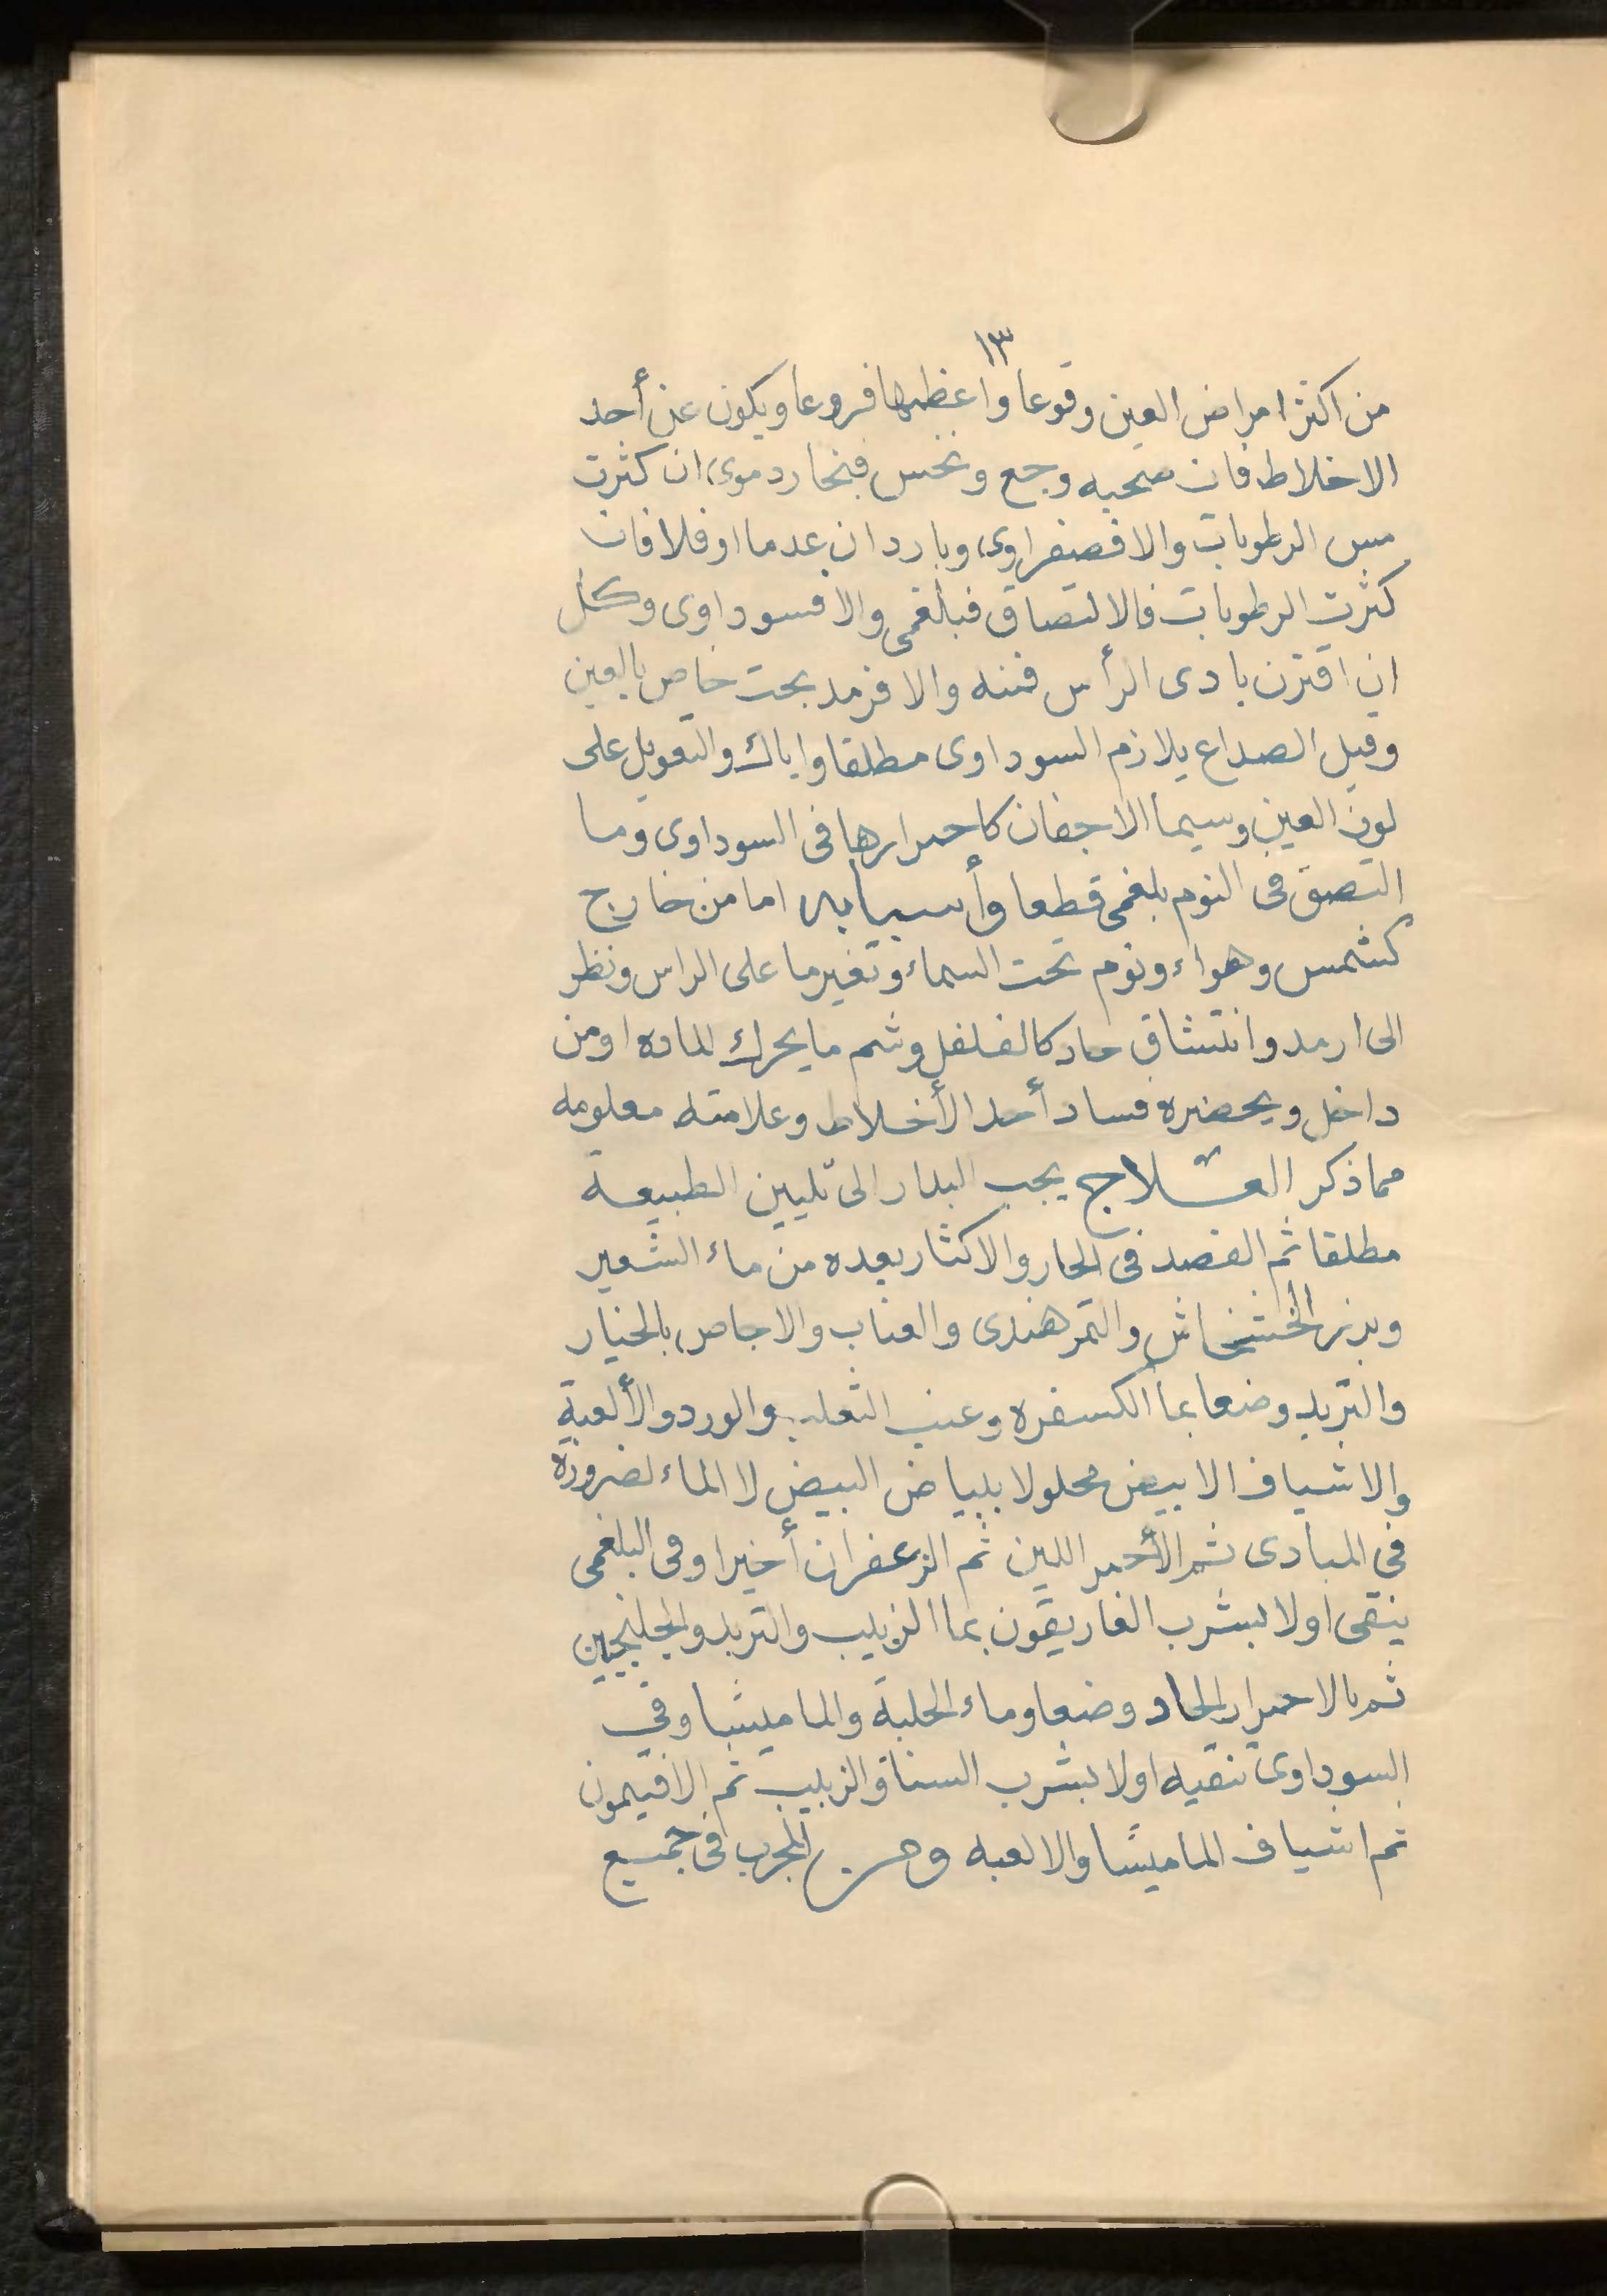 ١٣
من اكثر امراض العين وقوعا واعظمها فروعا ويكون عن أحد
الاخلاط فان صحبه وجع ونخس فبخار دموى ان كثرت
الرطوبات والا فصفراوى وبارد ان عدما او فلا فان
كثرت الرطوبات فالالتصاق فبلغمى والا فسوداوى وكل
ان اقترن باذى الرأس فمنه والا فرمد بحت خاص بالعين
وقيل الصداع يلازم السوداوى مطلقا واياك والتعويل على
لون العين وسيما الاجفان كاحمرارها فى السوداوى وما
التصق فى النوم بلغمى قطعا وأسبابه اما من خارج
كشمس وهواء ونوم تحت السماء وتغير ما على الراس ونظر
الى ارمد وانتشاق حاد كالفلفل وشم ما يحرك الماده او من
داخل ويحضره فساد أحد الأخلاط وعلامته معلومه
مما ذكر العــلاج يجب البدار الى تليين الطبيعة
مطلقا ثم الفصد فى الحار والاكثار بعده من ماء الشعير
وبزر الخشخاش والتمر هندى والعناب والاجاص بالخيار
والتربد وضعا بما الكسفره وعنب الثعلب والورد والألعبة
والاشياف الابيض محلولا ببياض البيض لا الماء لضرورة
فى المبادى ثم الأحمر اللين ثم الزعفران أخيرا وفى البلغمى
ينقى اولا بشرب الغاريقون بما الزبيب والتربد والجلنجبين
ثم بالاحمرار الحاد وضعا وماء الحلبة والماميثا وفى
السوداوى تنقيه اولا بشرب السنا والزبيب ثم الافتيمون
ثم اشياف الماميثا والالعبه ومن المجرب فى جميع